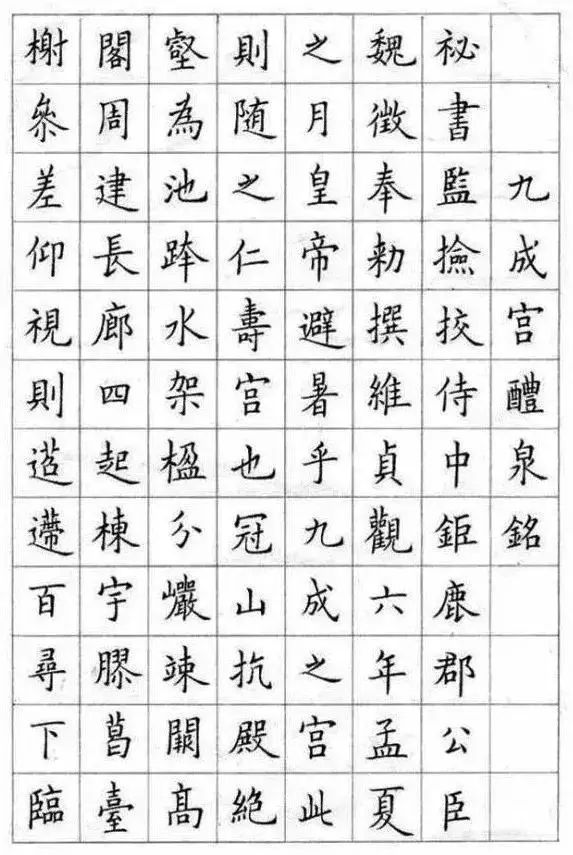 九成宮醴泉銘
祕書監撿挍侍中鉅鹿郡公臣
魏徵奉勑撰維貞觀六年孟夏
之月皇帝避暑乎九成之宮此
則随之仁壽宮也冠山抗殿絶
壑為池跨水架楹分巖竦闕髙
閣周建長廊四起棟宇膠葛臺
榭叅差仰視則迢遰百尋下臨